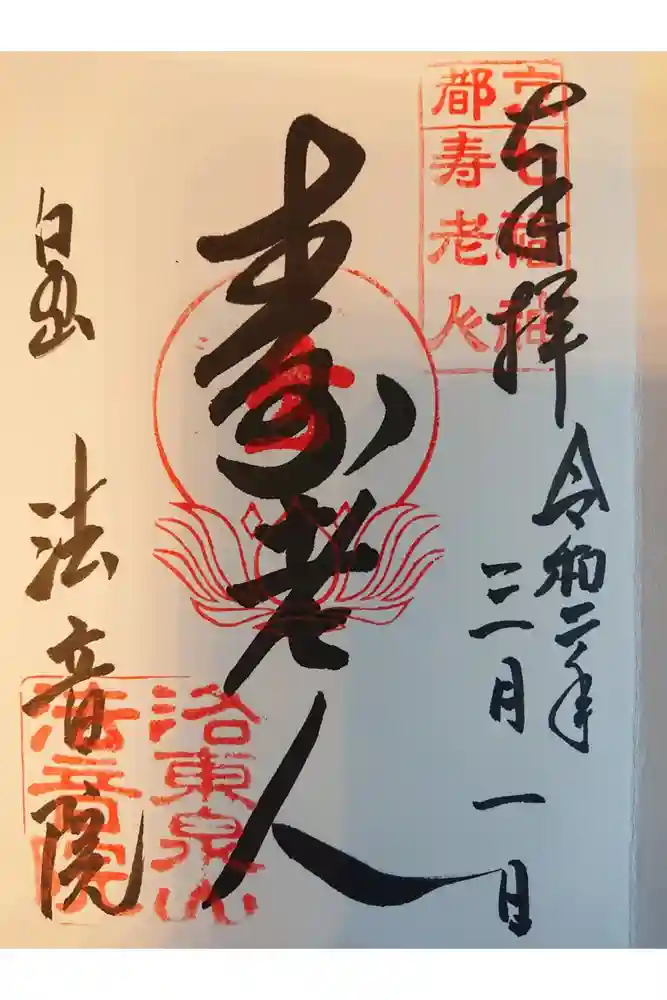 奉拝
令和二年
三月一日
京都
七福神
寿老人
寿老人
泉山 法音院
洛東泉山
法音院